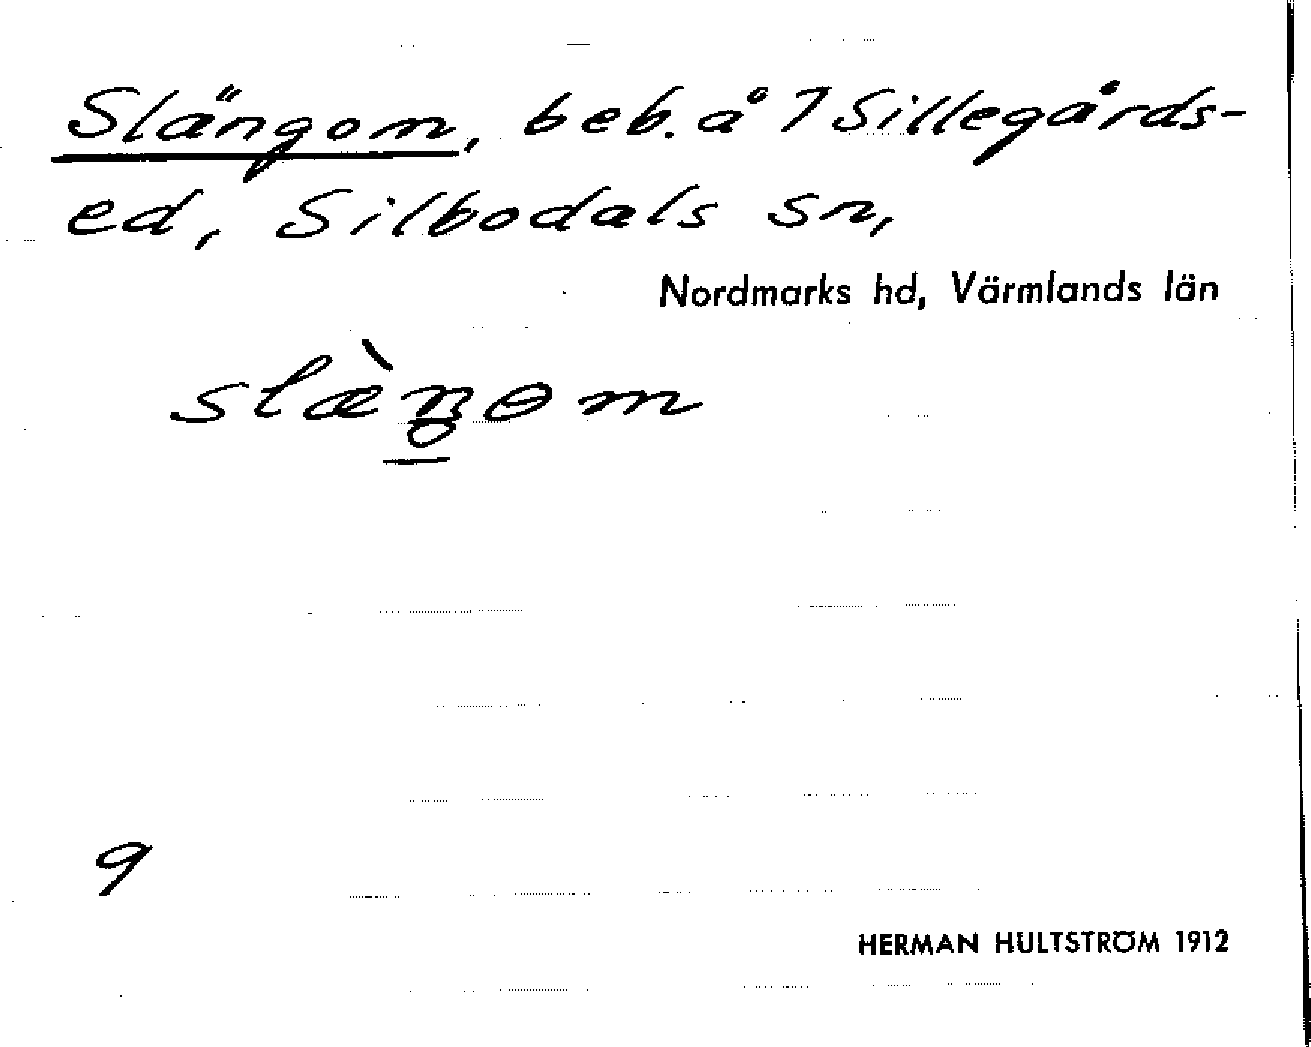 Slängom, beb. å 7 Sillegårds-
ed, Silbodals sn,
Nordmarks hd, Värmlands län
slæ̀ŋom
9
HERMAN HULTSTRÖM 1912